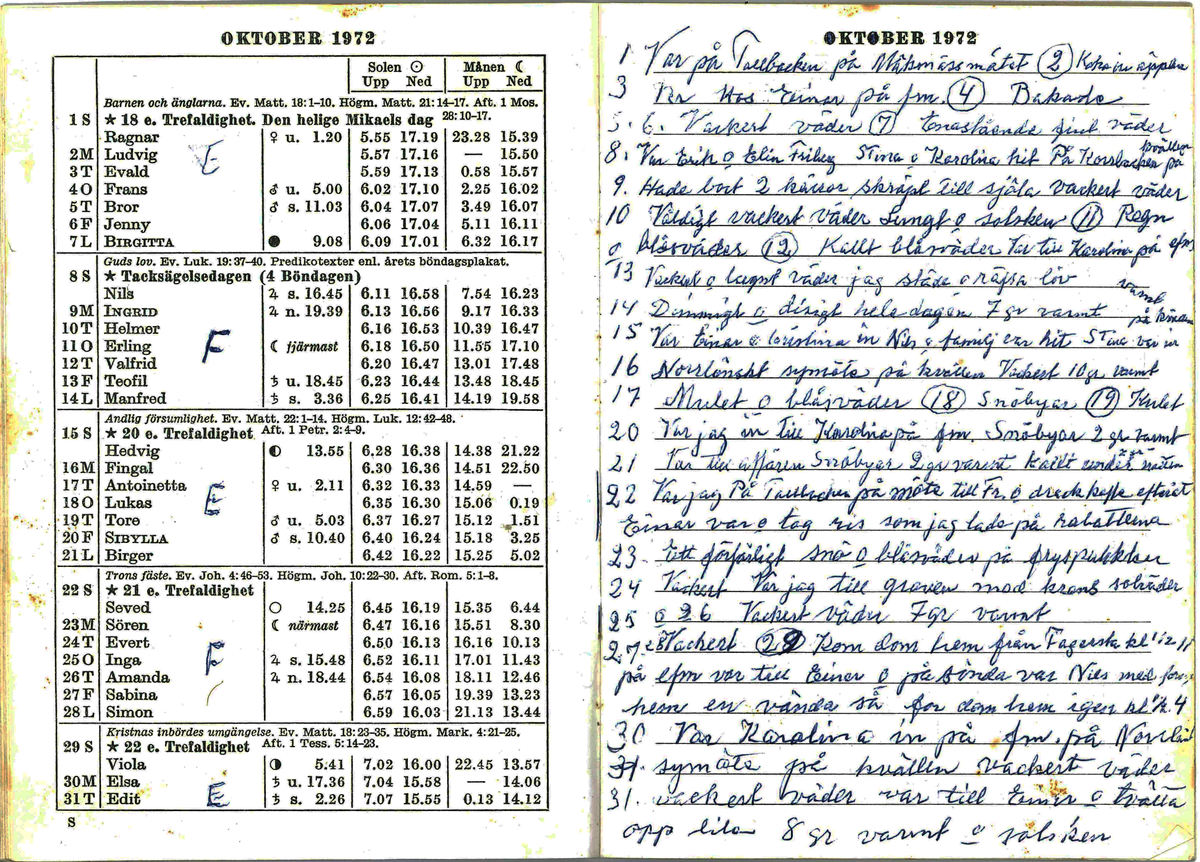 OKTOBER 1972
Solen ☉ Månen ☾
Upp Ned Upp Ned
Barnen och änglarna. Ev. Matt. 18:1-10. Högm. Matt. 21:14-17. Aft. 1 Mos. 28:10-17.
1 S ★ 18 e. Trefaldighet. Den helige Mikaels dag
Ragnar ♀ u. 1.20 5.55 17.19 23.28 15.39
2 M Ludvig 5.57 17.16 — 15.50
3 T Evald 5.59 17.13 0.58 15.57
4 O Frans ♂ u. 5.00 6.02 17.10 2.25 16.02
5 T Bror ♂ s. 11.03 6.04 17.07 3.49 16.07
6 F Jenny 6.06 17.04 5.11 16.11
7 L BIRGITTA ● 9.08 6.09 17.01 6.32 16.17
E
Guds lov. Ev. Luk. 19:37-40. Predikotexter enl. årets böndagsplakat.
8 S ★ Tacksägelsedagen (4 Böndagen)
Nils ♃ s. 16.45 6.11 16.58 7.54 16.23
9 M INGRID ♃ n. 19.39 6.13 16.56 9.17 16.33
10 T Helmer 6.16 16.53 10.39 16.47
11 O Erling ☾ fjärmast 6.18 16.50 11.55 17.10
12 T Valfrid 6.20 16.47 13.01 17.48
13 F Teofil ♄ u. 18.45 6.23 16.44 13.48 18.45
14 L Manfred ♄ s. 3.36 6.25 16.41 14.19 19.58
F
Andlig försumlighet. Ev. Matt. 22:1-14. Högm. Luk. 12:42-48.
15 S ★ 20 e. Trefaldighet Aft. 1 Petr. 2:4-9.
Hedvig ◐ 13.55 6.28 16.38 14.38 21.22
16 M Fingal 6.30 16.36 14.51 22.50
17 T Antoinetta ♀ u. 2.11 6.32 16.33 14.59 —
18 O Lukas 6.35 16.30 15.06 0.19
19 T Tore ♂ u. 5.03 6.37 16.27 15.12 1.51
20 F SIBYLLA ♂ s. 10.40 6.40 16.24 15.18 3.25
21 L Birger 6.42 16.22 15.25 5.02
E
Trons fäste. Ev. Joh. 4:46-53. Högm. Joh. 10:22-30. Aft. Rom. 5:1-8.
22 S ★ 21 e. Trefaldighet
Seved ○ 14.25 6.45 16.19 15.35 6.44
23 M Sören ☾ närmast 6.47 16.16 15.51 8.30
24 T Evert 6.50 16.13 16.16 10.13
25 O Inga ♃ s. 15.48 6.52 16.11 17.01 11.43
26 T Amanda ♃ n. 18.44 6.54 16.08 18.11 12.46
27 F Sabina 6.57 16.05 19.39 13.23
28 L Simon 6.59 16.03 21.13 13.44
F
Kristnas inbördes umgängelse. Ev. Matt. 18:23-35. Högm. Mark. 4:21-25.
29 S ★ 22 e. Trefaldighet Aft. 1 Tess. 5:14-23.
Viola ◑ 5.41 7.02 16.00 22.45 13.57
30 M Elsa ♄ u. 17.36 7.04 15.58 — 14.06
31 T Edit ♄ s. 2.26 7.07 15.55 0.13 14.12
E
S
OKTOBER 1972
1 Var på Tallbacken på 2 Koka in äpplen
3 Var Hos Einar på fm. 4 Bakade
5. 6. Vackert väder 7 Enastående fint väder
8. Var Erik o Elin Friberg Stina o Karolina hit På Korsbacken på kvällen
9. Hade bort 2 kärror skräpt till själa vackert väder
10 Väldigt vackert väder Lungt o solsken 11 Regn
o blåsväder 12 Kallt blåsväder Var till Karolina på efm
13 Vackert o lugnt väder jag städa o räfsa löv
14 Dimmigt o disigt hela dagen 7 gr varmt
15 Var Einar o Kristina in Nils o familj var hit Stina var in
16 Norrlänskt symöte på kvällen Vackert 10 gr. varmt
17 Mulet o blåsväder 18 Snöbyar 19 Kulet
20 Var jag in till Karolina på fm. Snöbyar 2 gr varmt
21 Var till affären Snöbyar 2 gr varmt Kallt under natten
22 Var jag På Tallbacken på möte till Fr. o drack kaffe efteråt
Einar var o tog ris som jag lade på rabatterna
23. Ett förfärligt snö o blåsväder på
24 Vackert Var jag till graven med krans solväder
25 o 26 Vackert väder 7 gr varmt
27. 28 Vackert 29 Kom dom hem från Fagersta kl 1/2 11
på efm var till Einar o var Nils med
hem en vända så for dom hem igen kl 1/2 4
30 Var Karolina in på fm. på Norrländ
symöte på kvällen Vackert väder
31. vackert väder var till Einar o tvätta
opp lite 8 gr varmt o solsken